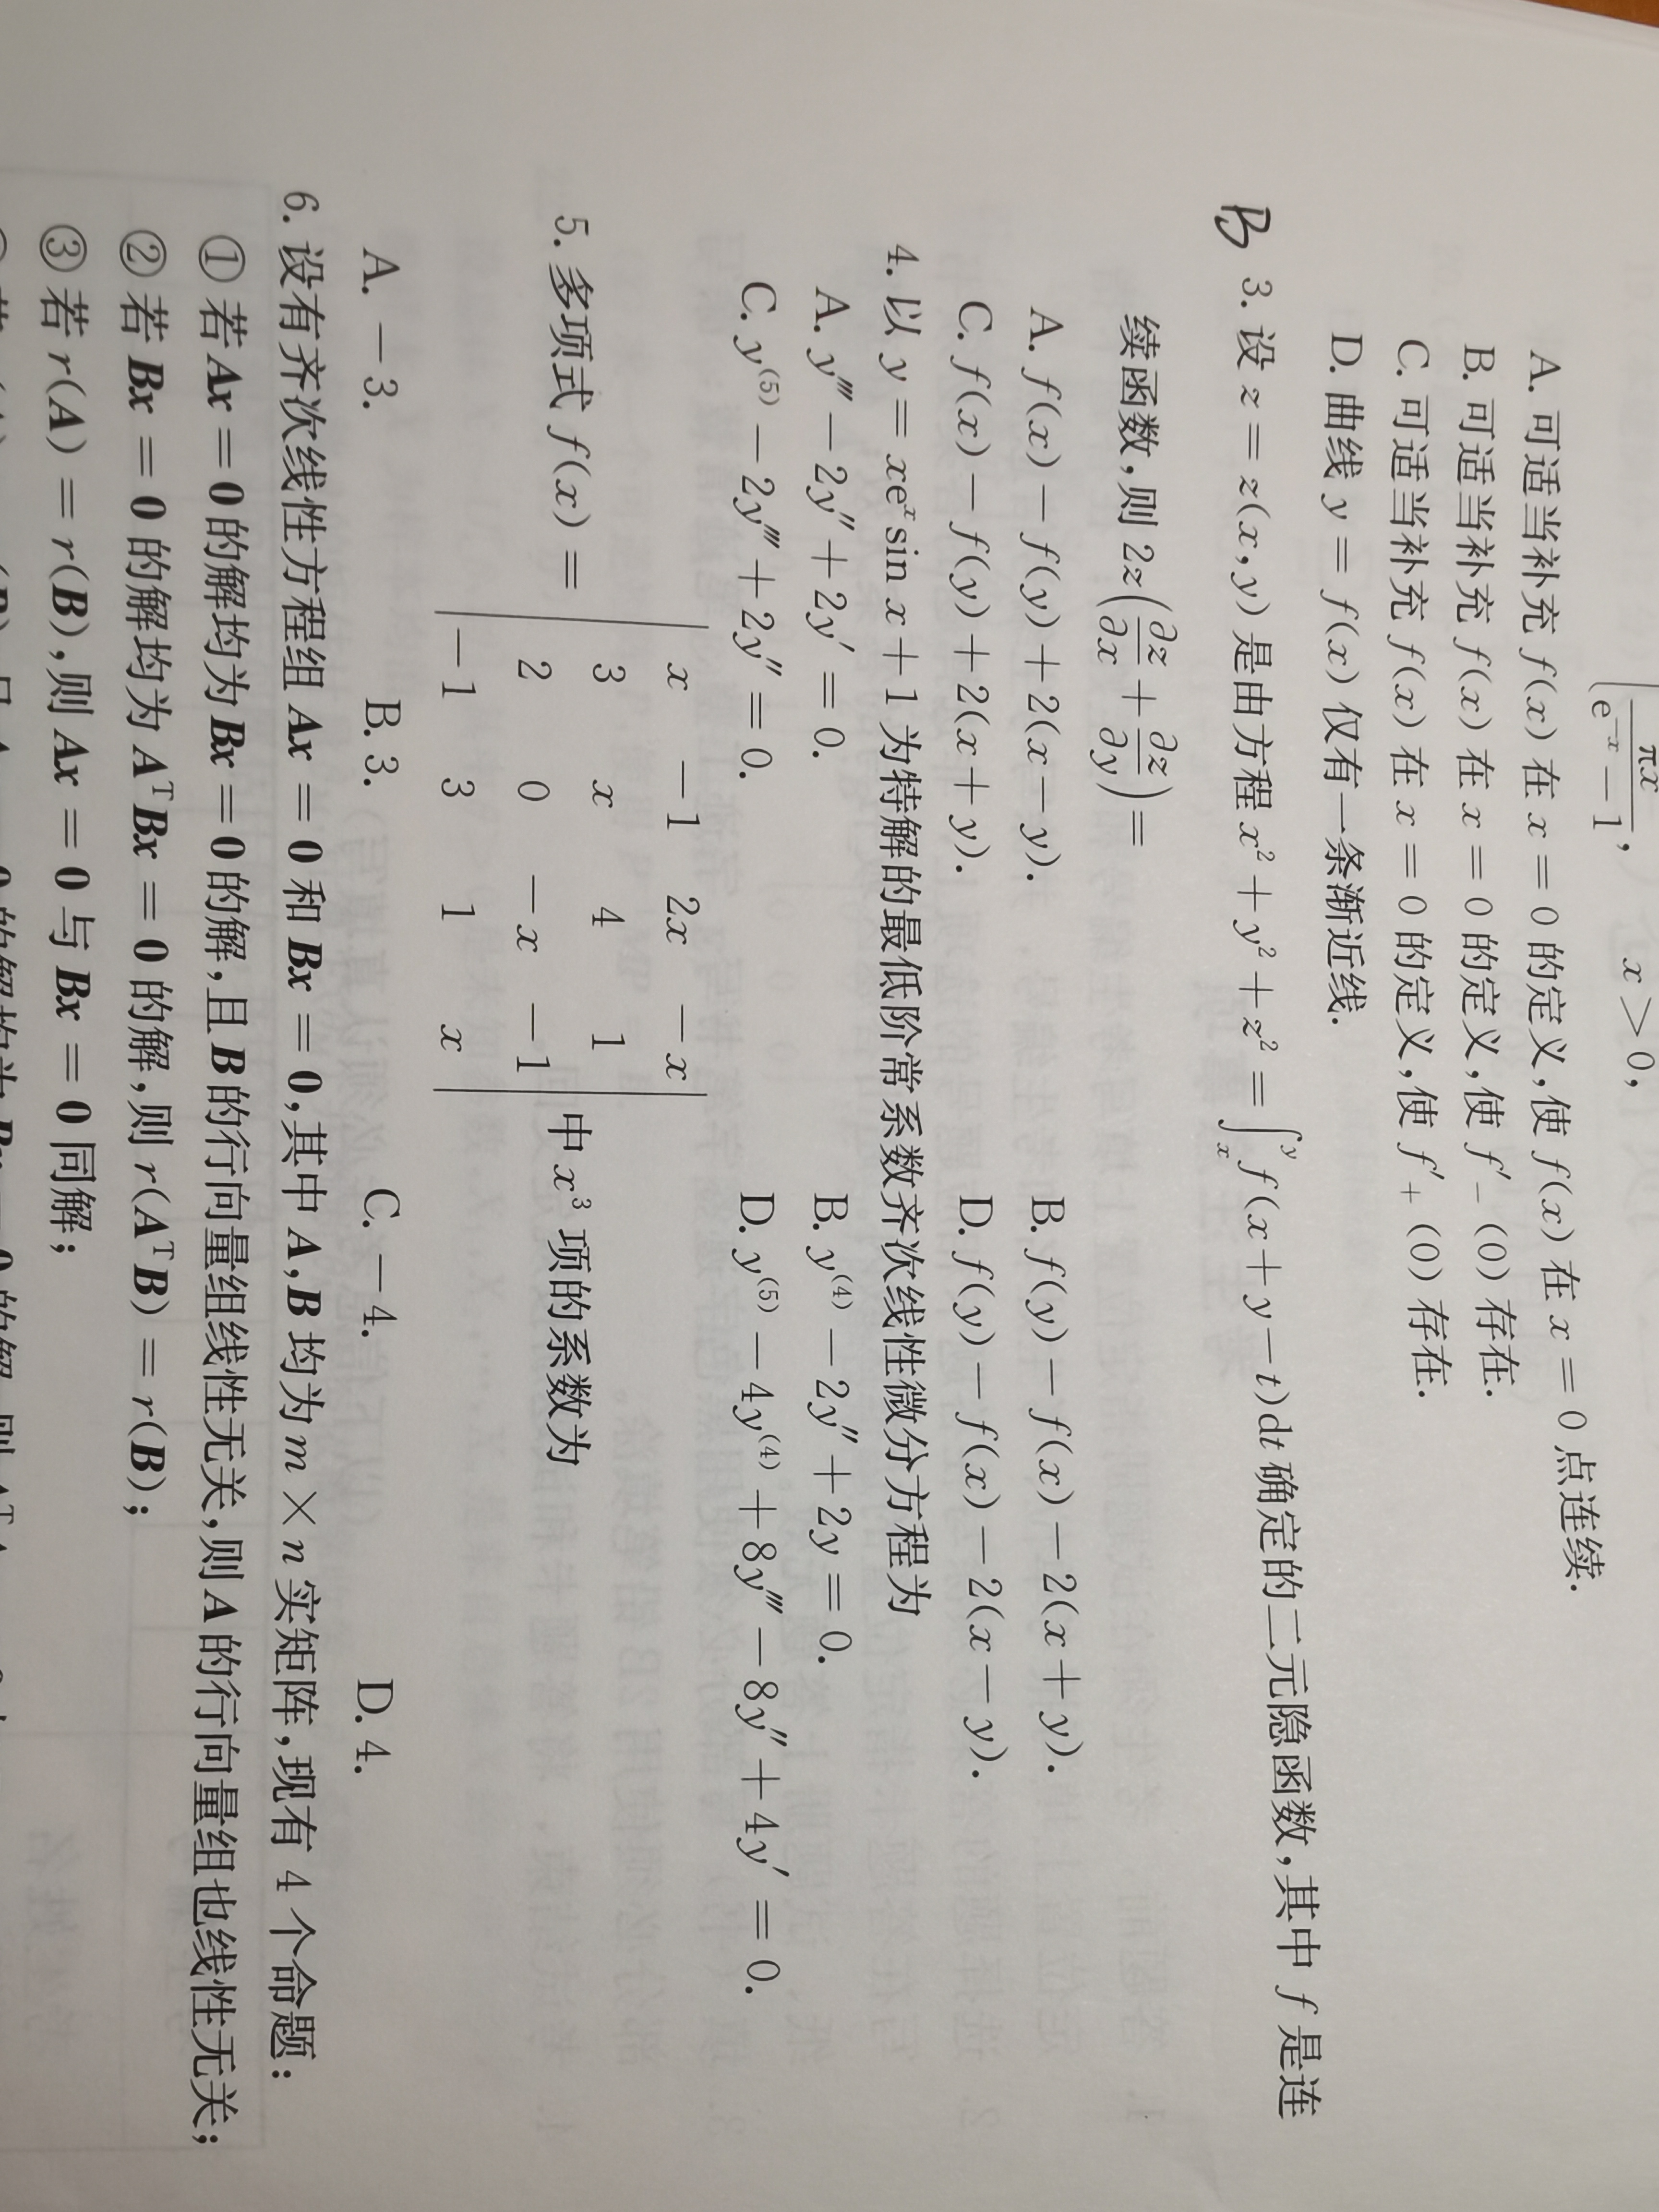 πx/(e⁻ˣ − 1), x > 0,
A. 可适当补充 f(x) 在 x = 0 的定义,使 f(x) 在 x = 0 点连续.
B. 可适当补充 f(x) 在 x = 0 的定义,使 f′₋(0) 存在.
C. 可适当补充 f(x) 在 x = 0 的定义,使 f′₊(0) 存在.
D. 曲线 y = f(x) 仅有一条渐近线.
B 3. 设 z = z(x,y) 是由方程 x² + y² + z² = ∫ₓʸ f(x + y − t)dt 确定的二元隐函数,其中 f 是连
续函数,则 2z(∂z/∂x + ∂z/∂y) =
A. f(x) − f(y) + 2(x − y). B. f(y) − f(x) − 2(x + y).
C. f(x) − f(y) + 2(x + y). D. f(y) − f(x) − 2(x − y).
4. 以 y = xeˣsin x + 1 为特解的最低阶常系数齐次线性微分方程为
A. y‴ − 2y″ + 2y′ = 0. B. y⁽⁴⁾ − 2y″ + 2y = 0.
C. y⁽⁵⁾ − 2y‴ + 2y″ = 0. D. y⁽⁵⁾ − 4y⁽⁴⁾ + 8y‴ − 8y″ + 4y′ = 0.
x −1 2x −x
3 x 4 1
5. 多项式 f(x) = 中 x³ 项的系数为
2 0 −x −1
−1 3 1 x
A. −3. B. 3. C. −4. D. 4.
6. 设有齐次线性方程组 Ax = 0 和 Bx = 0,其中 A,B 均为 m × n 实矩阵,现有 4 个命题:
① 若 Ax = 0 的解均为 Bx = 0 的解,且 B 的行向量组线性无关,则 A 的行向量组也线性无关;
② 若 Bx = 0 的解均为 AᵀBx = 0 的解,则 r(AᵀB) = r(B);
③ 若 r(A) = r(B),则 Ax = 0 与 Bx = 0 同解;